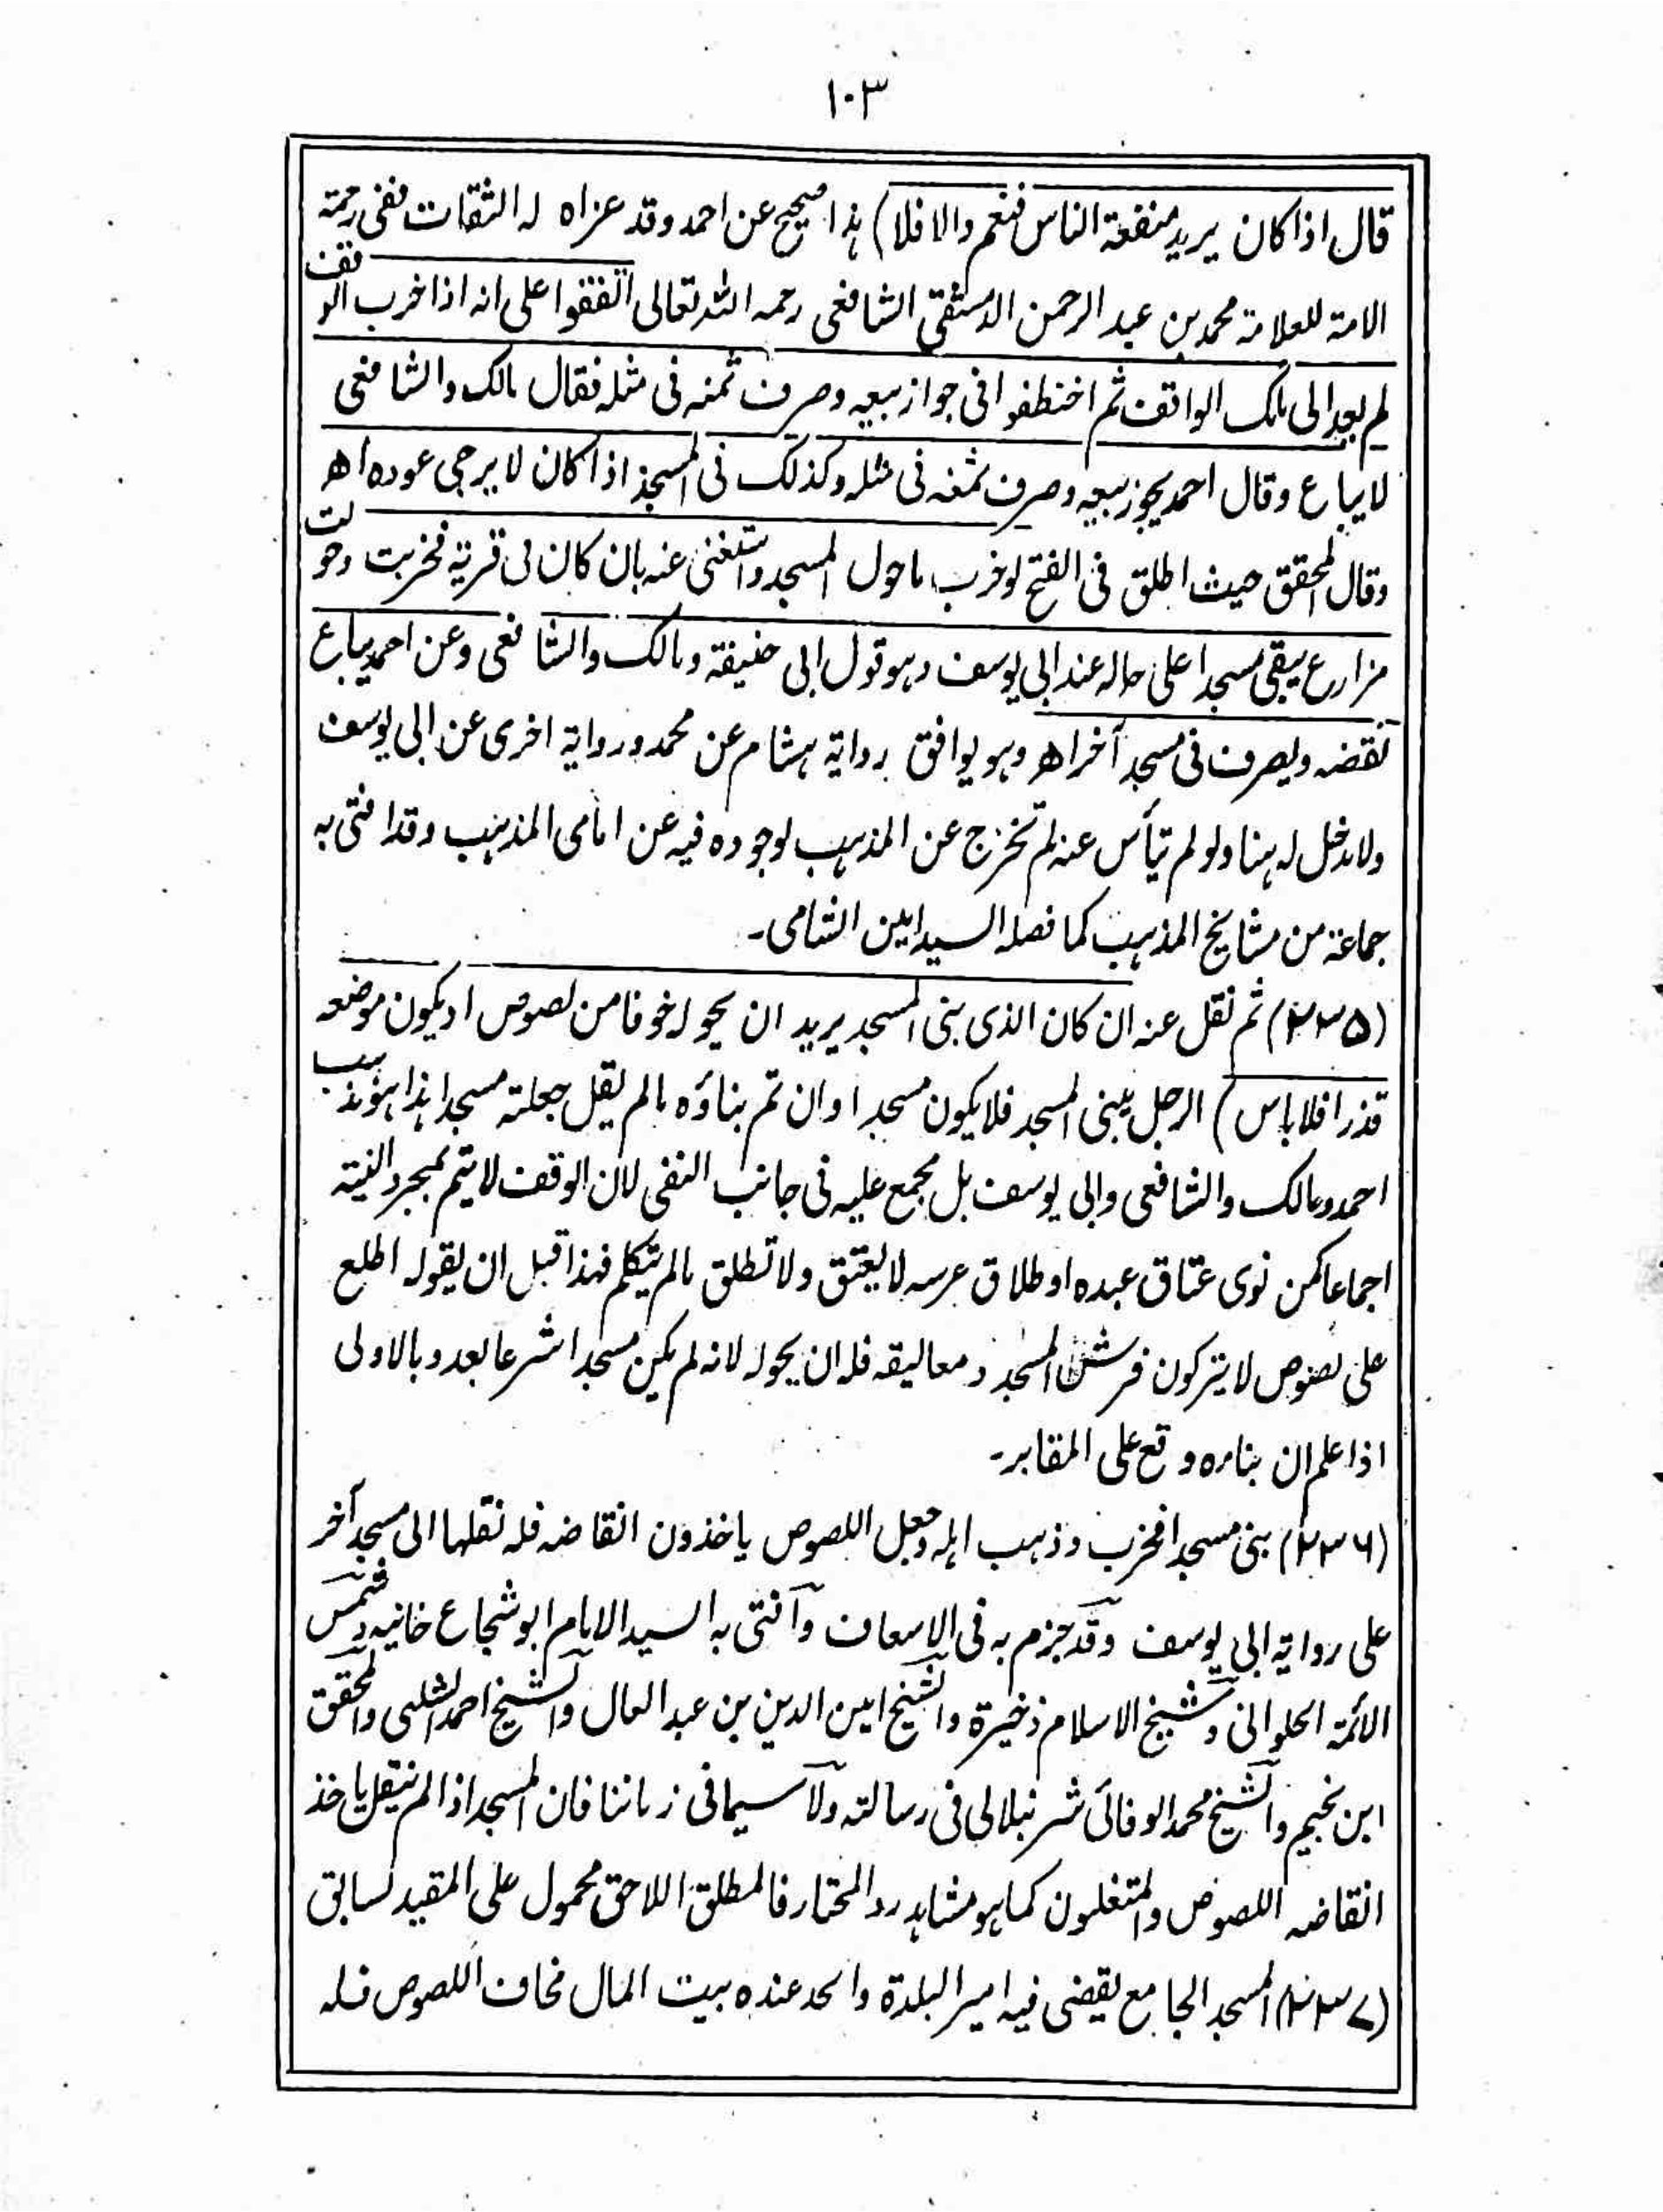 ۱۰۳
قال اذا کان یرید منفعة الناس فنعم والا فلا) ہذا صحیح عن احمد وقد عزاہ لہ الثقات ففی رحمة
الامة للعلامة محمد بن عبد الرحمن الدمشقی الشافعی رحمہ اللہ تعالی اتفقوا علی انہ اذا خرب الوقف
لم یعد الی ملک الواقف ثم اختلفوا فی جواز بیعہ وصرف ثمنہ فی مثلہ فقال مالک والشافعی
لا یباع وقال احمد یجوز بیعہ وصرف ثمنہ فی مثلہ وکذلک فی المسجد اذا کان لا یرجی عودہ اھ
وقال المحقق حیث اطلق فی الفتح لو خرب ماحول المسجد واستغنی عنہ بان کان فی قریة فخربت وحولت
مزارع یبقی مسجدا علی حالہ عند ابی یوسف وہو قول ابی حنیفة ومالک والشافعی وعن احمد یباع
نقضہ ویصرف فی مسجد آخر اھ وہو یوافق روایة ہشام عن محمد وروایة اخری عن ابی یوسف
ولا دخل لہ ہنا ولو لم تیأس عنہ لم تخرج عن المذہب لوجودہ فیہ عن امامی المذہب وقد افتی بہ
جماعة من مشایخ المذہب کما فصلہ السید امین الشامی۔
(۲۳۵) ثم نقل عنہ ان کان الذی بنی المسجد یرید ان یحولہ خوفا من لصوص او یکون موضعہ
قذرا فلا باس) الرجل یبنی المسجد فلا یکون مسجدا وان تم بناؤہ مالم یقل جعلتہ مسجدا ہذا ہو مذہب
احمد ومالک والشافعی وابی یوسف بل مجمع علیہ فی جانب النفی لان الوقف لا یتم بمجرد النیة
اجماعا کمن نوی عتاق عبدہ او طلاق عرسہ لا یعتق ولا تطلق مالم یتکلم فہذا قبل ان یقولہ اطلع
علی لصوص لا یترکون فرش المسجد ومعالیقہ فلہ ان یحولہ لانہ لم یکن مسجدا شرعا بعد وبالاولی
اذا علم ان بناءہ وقع علی المقابر۔
(۲۳۶) بنی مسجدا فخرب وذہب اہلہ وجعل اللصوص یاخذون انقاضہ فلہ نقلہا الی مسجد آخر
علی روایة ابی یوسف وقد جزم بہ فی الاسعاف وافتی بہ السید الامام ابو شجاع خانیہ وشمس
الائمة الحلوانی وشیخ الاسلام ذخیرة والشیخ امین الدین بن عبد العال والشیخ احمد الشلبی والمحقق
ابن نجیم والشیخ محمد الوفائی شرنبلالی فی رسالتہ ولا سیما فی زماننا فان المسجد اذا لم ینقل یاخذ
انقاضہ اللصوص والمتغلبون کما ہو مشاہد ردالمحتار فالمطلق اللاحق محمول علی المقید لسابق
(۲۳۷) المسجد الجامع یقضی فیہ امیر البلدة واتحد عندہ بیت المال فخاف اللصوص فلہ